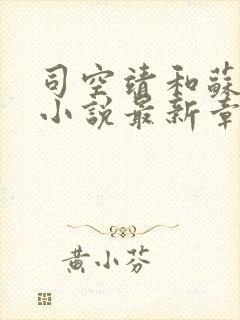 司空靖和蘇
小說最新章
黃小芬